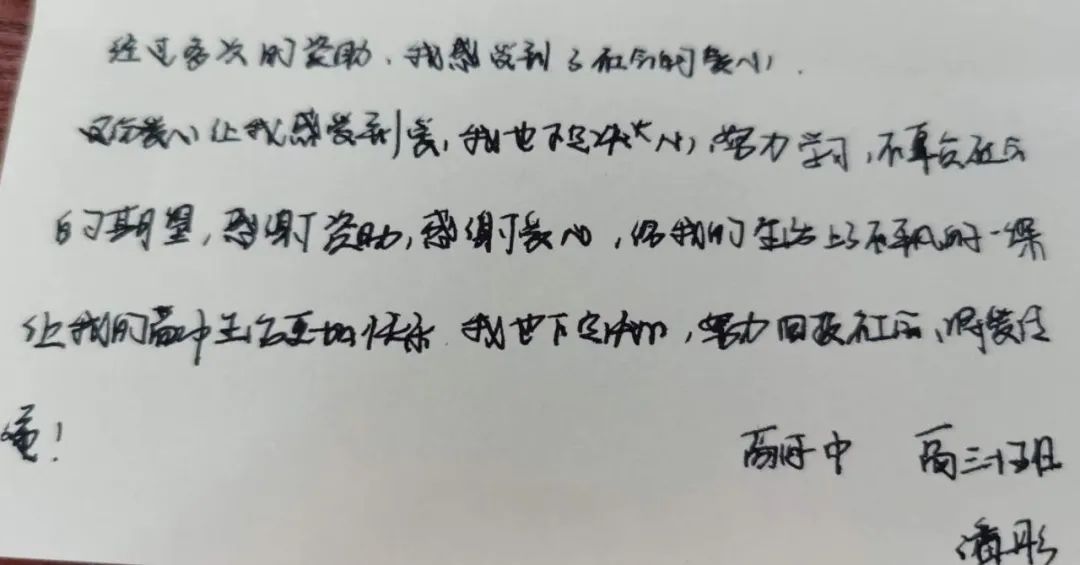 经过多次的资助,我感受到了社会的爱心,
这份爱心让我感受到爱,我也下定决心,努力学习,不辜负社会
的期望,感谢资助,感谢爱心,给我的生活上了不平凡的一课
让我的高中生活更加快乐 我也下定决心,努力回报社会,将爱传
递!
高河中 高三十班
潘彤